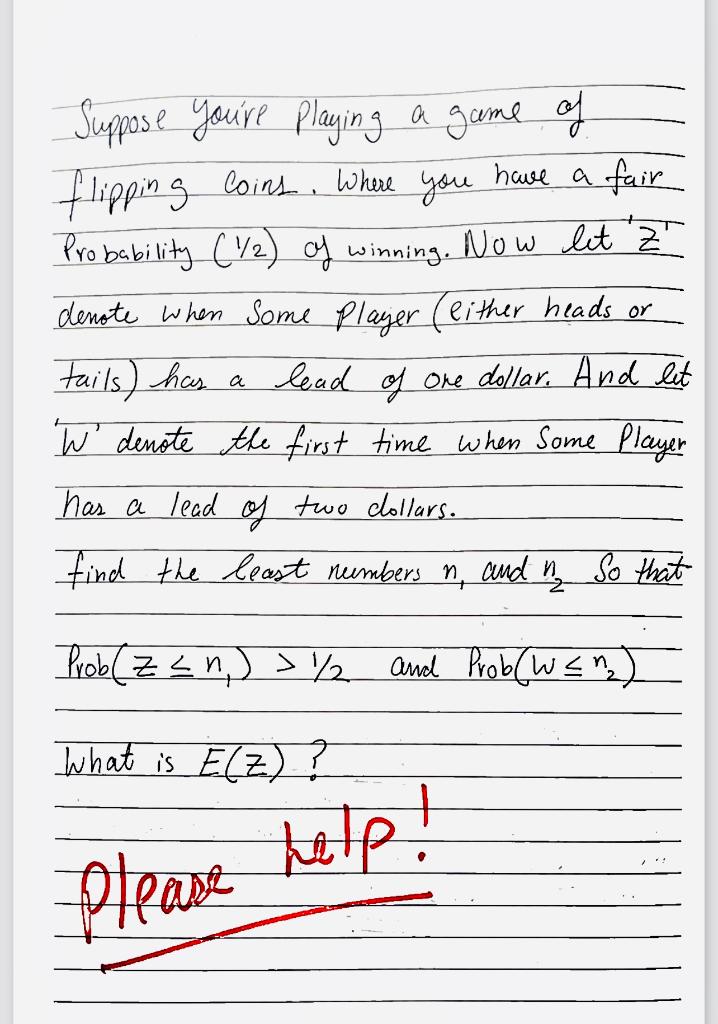 Suppose You're Playing a game of
flipping Coins. Where you have a fair
Probability (1/2) of winning. Now let 'Z'
denote when Some Player (either heads or
tails) has a lead of one dollar. And let
'W' denote the first time when Some Player
has a lead of two dollars.
find the least numbers n₁ and n₂ So that
Prob(Z ≤ n₁) > 1/2 and Prob(W ≤ n₂)
What is E(Z) ?
Please help!